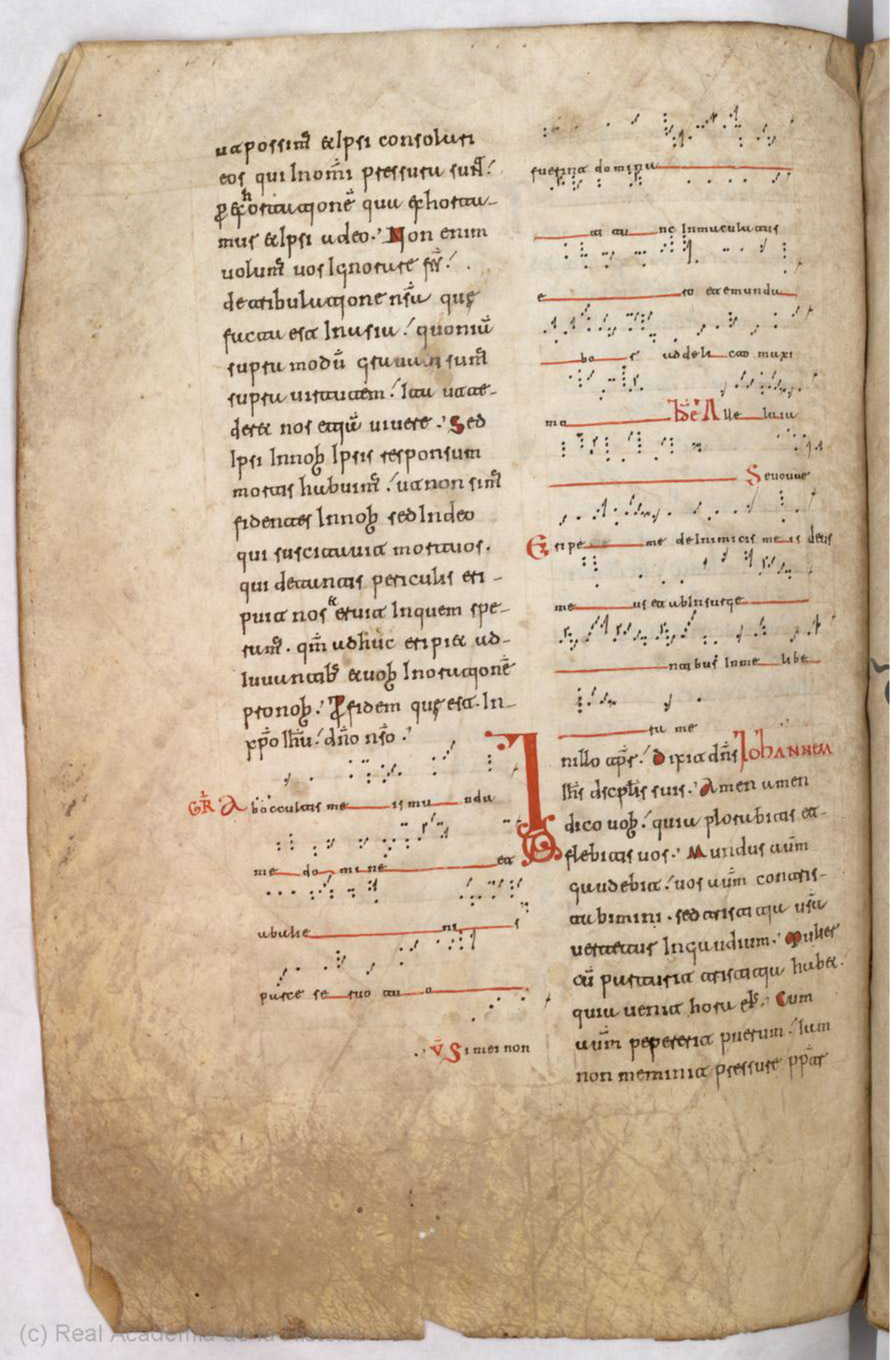 ut possim̄ & ipsi consolari
eos qui In om̄i pressura sun̄t.
p exhortatjonē qua exhorta-
mur & ipsi a deo. Non enim
volum̄ vos Ignorare fr̄s.
de tribulatjone nsā quę
facta est In asia. quoniā
supra modū grauati sum̄
supra uirtutem. Ita ut te-
deret nos etjā uiuere. Sed
Ipsi In nob̄ Ipsis responsum
mortis habuim̄. ut non sim̄
fidentes In nob̄ sed In deo
qui suscitauit mortuos.
qui de tantis periculis eri-
puit nos & eruit In quem spe-
ram̄. qm̄ adhuc eripiet ad-
Iuuantib̄ & uob̄ In oratjonē
pro nob̄. P fidem quę est. In
xp̄o Ih̄u. dn̄o nsō.
GR̄ Ab occultis me is munda
me domine et
ab alie ni s
parce seruo tuo
V̄ Si mei non
fuerint domina
ti tunc Inmaculatus
e ro et emunda
bo r ad delicto maxi
mo Alleluia
Seuouae
Eripe me de Inimicis meis deus
me us et ab Insurge
ntibus In me libe
ra me
In illo tp̄re. Dixit dn̄s Iohannem
Ih̄s discplis suis. Amen amen
dico uob̄. quia plorabitis et
flebitis uos. Mundus aūm
gaudebit. uos aūm contris-
tabimini. sed tristitja usā
uertetur In gaudium. Mulier
cū parturit tristitja habet.
quia uenit hora eīs. Cum
aūm pepererit puerum. Iam
non meminit pressure pp̄ter
(c) Real Academia de la Historia